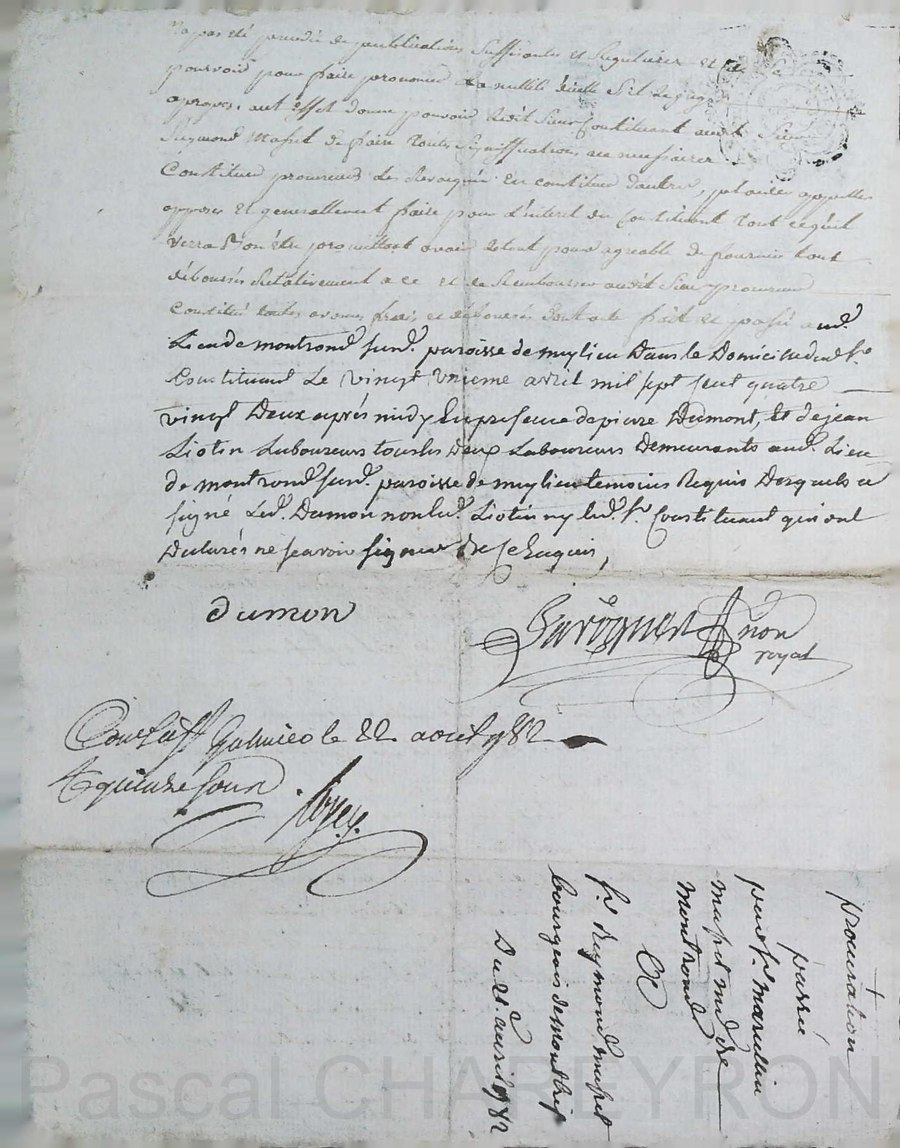 n'a pas été procédé de publications suffisantes et regulieres et de se
pourvoir pour faire prononcer la nullité d'icelle s'il
apropos, aut effet donne pouvoir ledit sieur constituant audit sieur
Reymond Mafret de faire toutes significations necessaires
Constituer procureurs les revoquer En constituer d'autres, plaider appeller
opposer Et generallement faire pour l'interet du Constituant tout ce qu'il
verra bon être promettant avoir letout pour agreable de fournir tout
déboursés Relativement a ce et de Rembourser audit sieur procureur
Constitué toutes avances frais et déboursés dont acte fait et passé aud.
Lieu de montrond surd. paroisse de meylieu Dans le Domicile dud. Sr.
Constituant Le vingt unieme avril mil sept cent quatre
vingt Deux après midy En presence de pierre Dumont, Et de jean
Liotin Laboureurs tous les Deux Laboureurs Demeurants aud. Lieu
de montrond surd. paroisse de meylieu temoins Requis Desquels a
signé Led. Dumon non led. Liotin ny led. Sr. Constituant qui ont
Declarés ne scavoir signer De ce Enquis,
dumon
non
royal
Galmier le 22 avril 1782
Reçu quinze sous
procuration
passée
par Sr. marcellin
mafret md. de
montrond
a
Sr. Reymond mafret
bourgeois de montbrison
Du 21. avril 1782
Pascal CHAREYRON